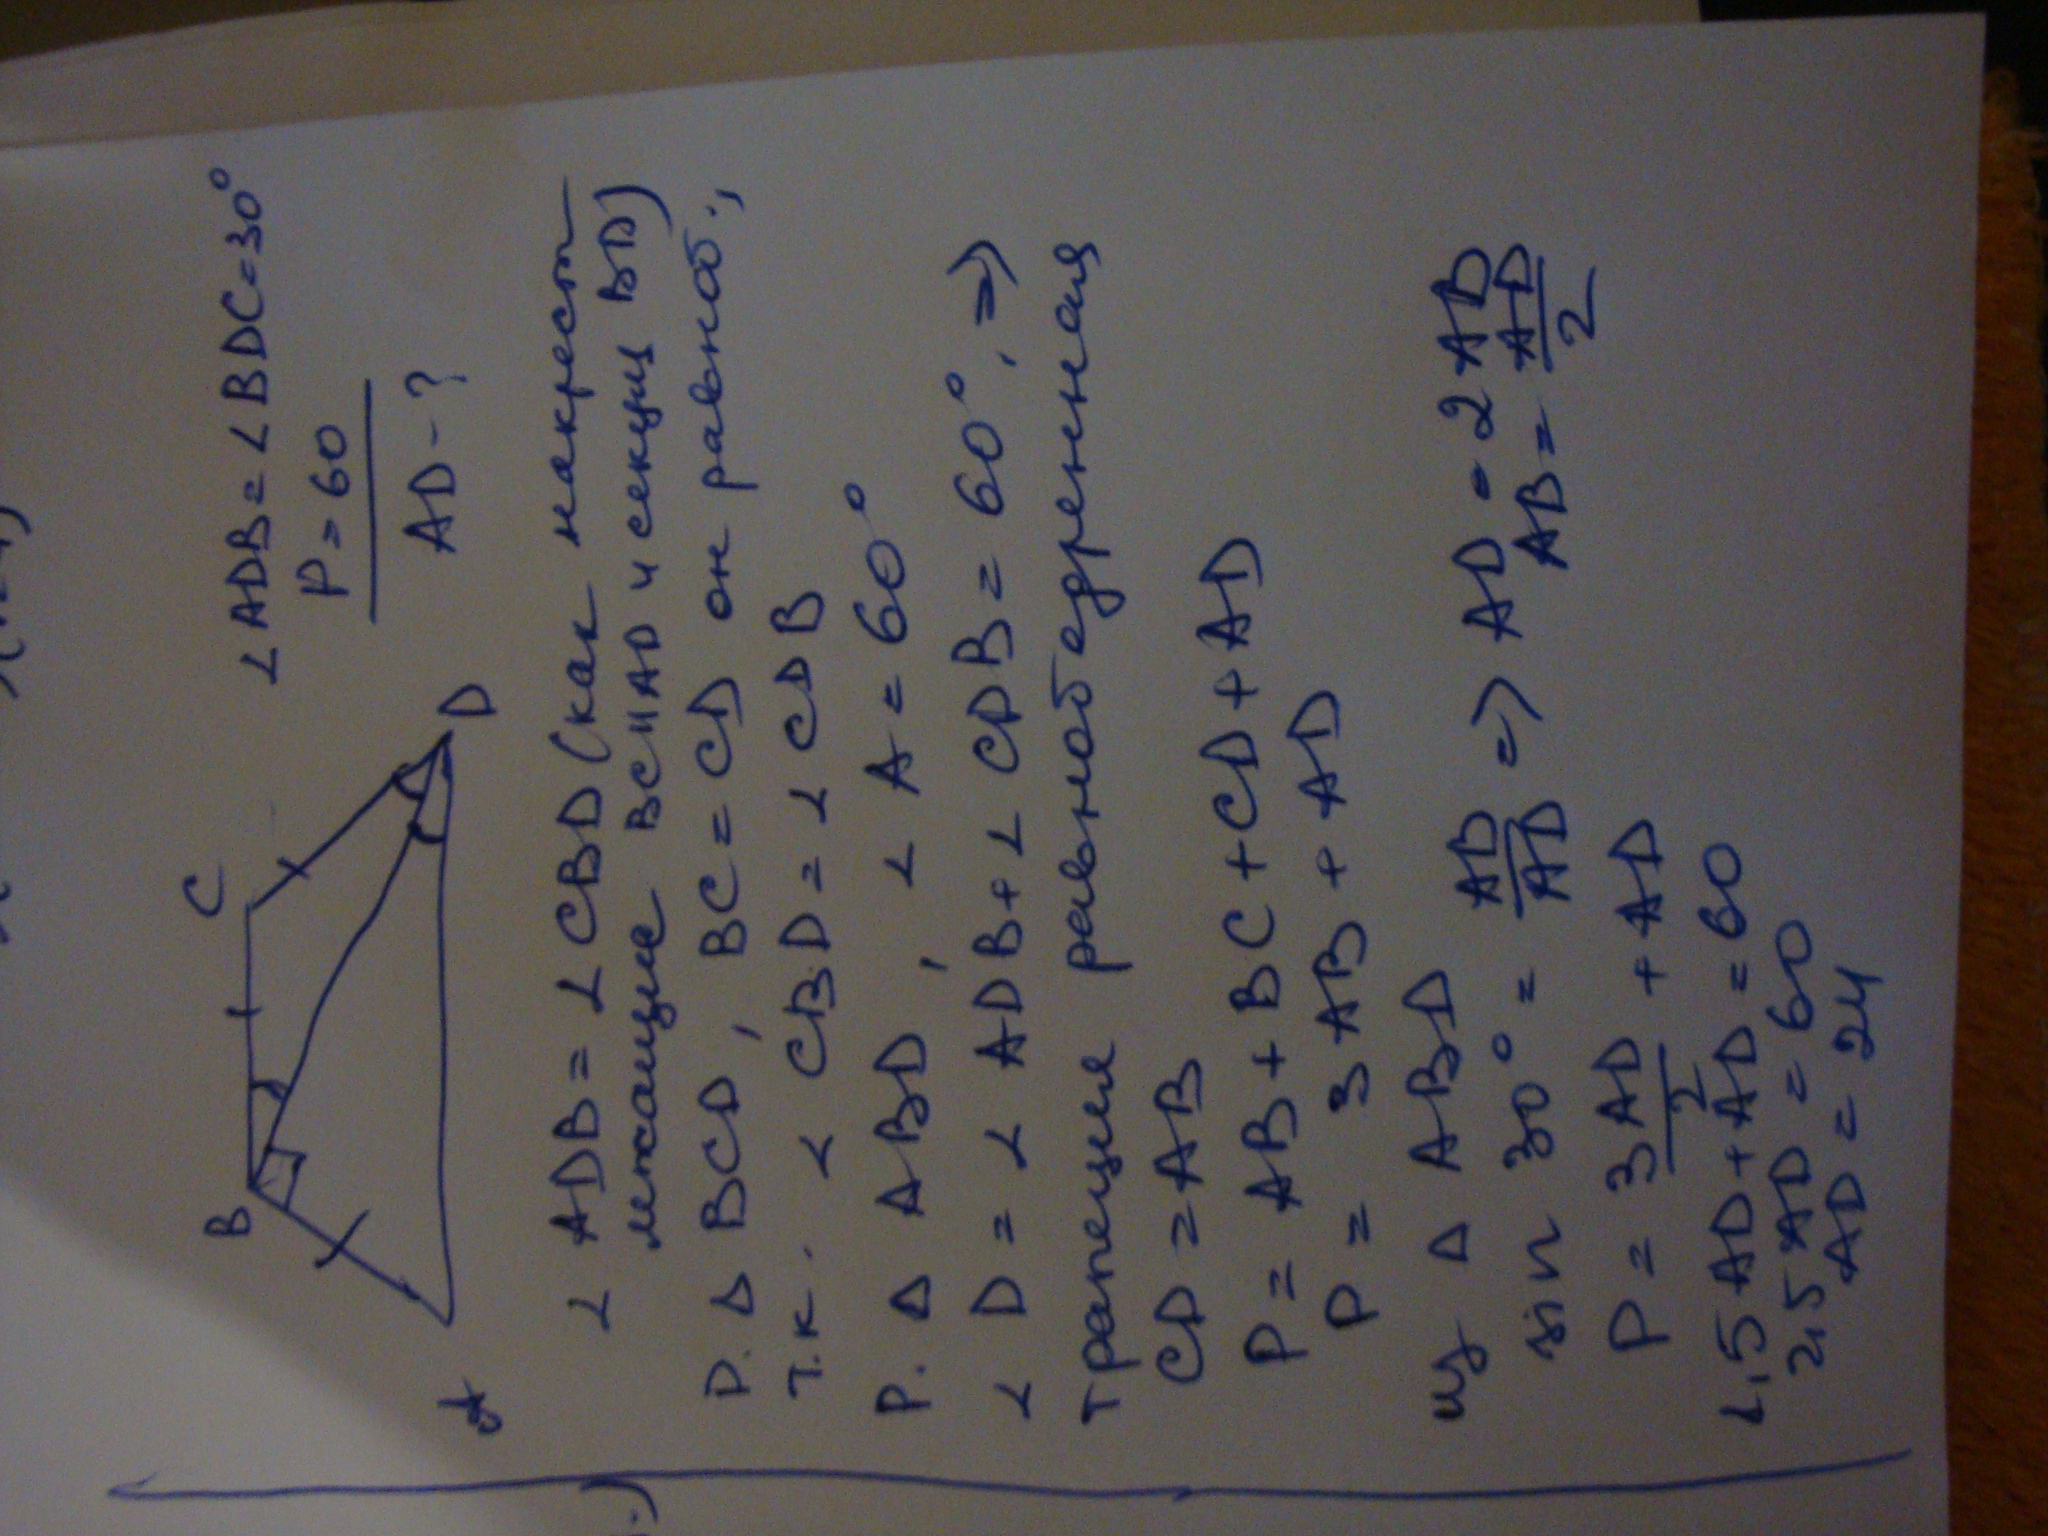 ∠ADB = ∠BDC = 30°
P = 60
AD - ?
B
C
D
A
∠ADB = ∠CBD (как накрест
лежащие BC и AD и секущ BD)
Р. Δ BCD, BC = CD он равноб.,
т.к. ∠CBD = ∠CDB
Р. Δ ABD, ∠A = 60°
∠D = ∠ADB + ∠CDB = 60°, =>
трапеция равнобедренная
CD = AB
P = AB + BC + CD + AD
P = 3AB + AD
из Δ ABD
sin 30° = AB/AD => AD = 2AB
AB = AD/2
P = 3AD/2 + AD
1,5AD + AD = 60
2,5AD = 60
AD = 24